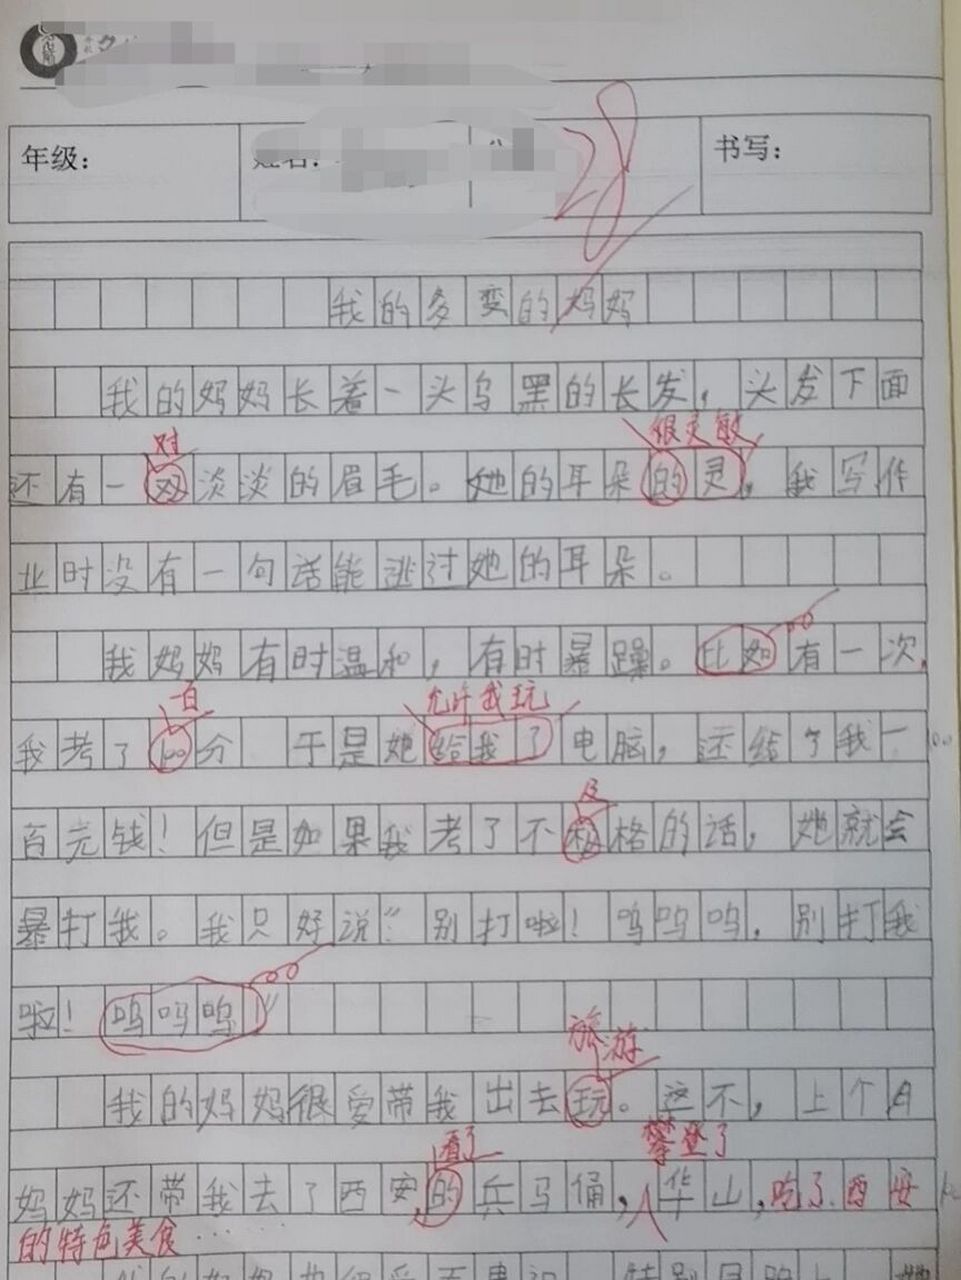 年级：
书写：
28
我的多变的妈妈
我的妈妈长着一头乌黑的长发，头发下面
对
很灵敏
还有一双淡淡的眉毛。她的耳朵的灵，我写作
业时没有一句话能逃过她的耳朵。
我妈妈有时温和，有时暴躁。比如有一次，
一百
允许我玩
我考了100分 于是她给我了电脑，还给了我一
百元钱！但是如果我考了不极格的话，她就会
及
暴打我。我只好说：“别打啦！呜呜呜，别打我
啦！呜吗呜”
旅游
我的妈妈很爱带我出去玩。这不，上个月
看了
攀登了
妈妈还带我去了西安的兵马俑，华山，吃了西安
的特色美食……